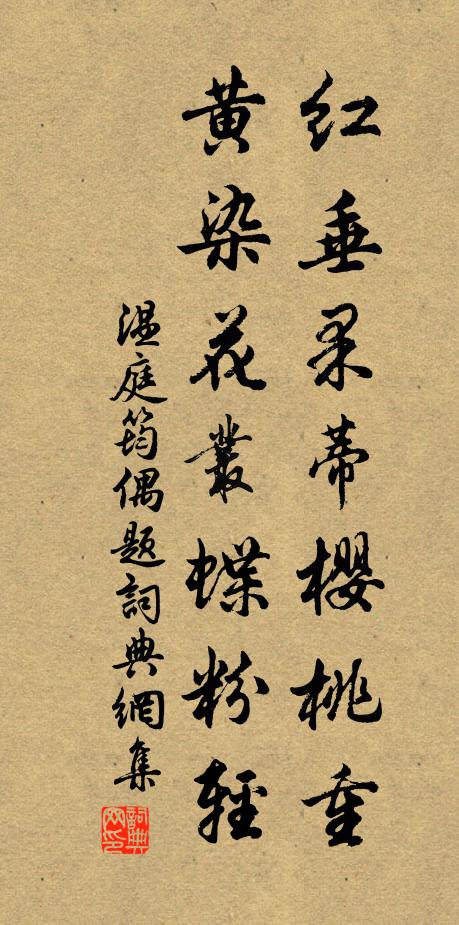 红垂果蒂樱桃重
黄染花丛蝶粉轻
温庭筠偶题词典网集
詞典
网印